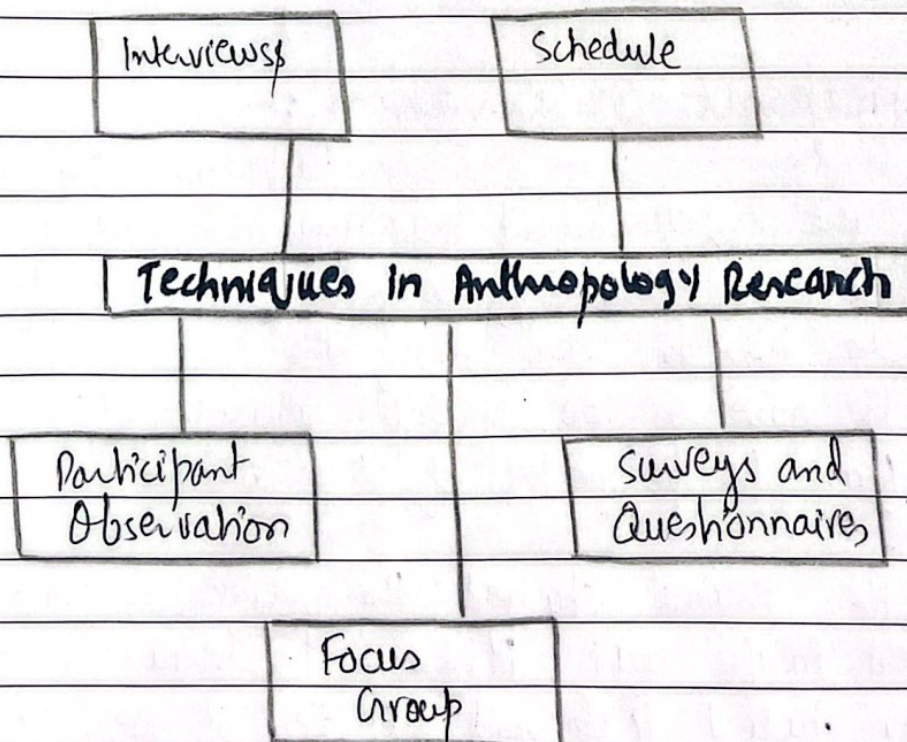 Interviews
Schedule
Techniques in Anthropology Research
Participant
Observation
Surveys and
Questionnaires
Focus
Group